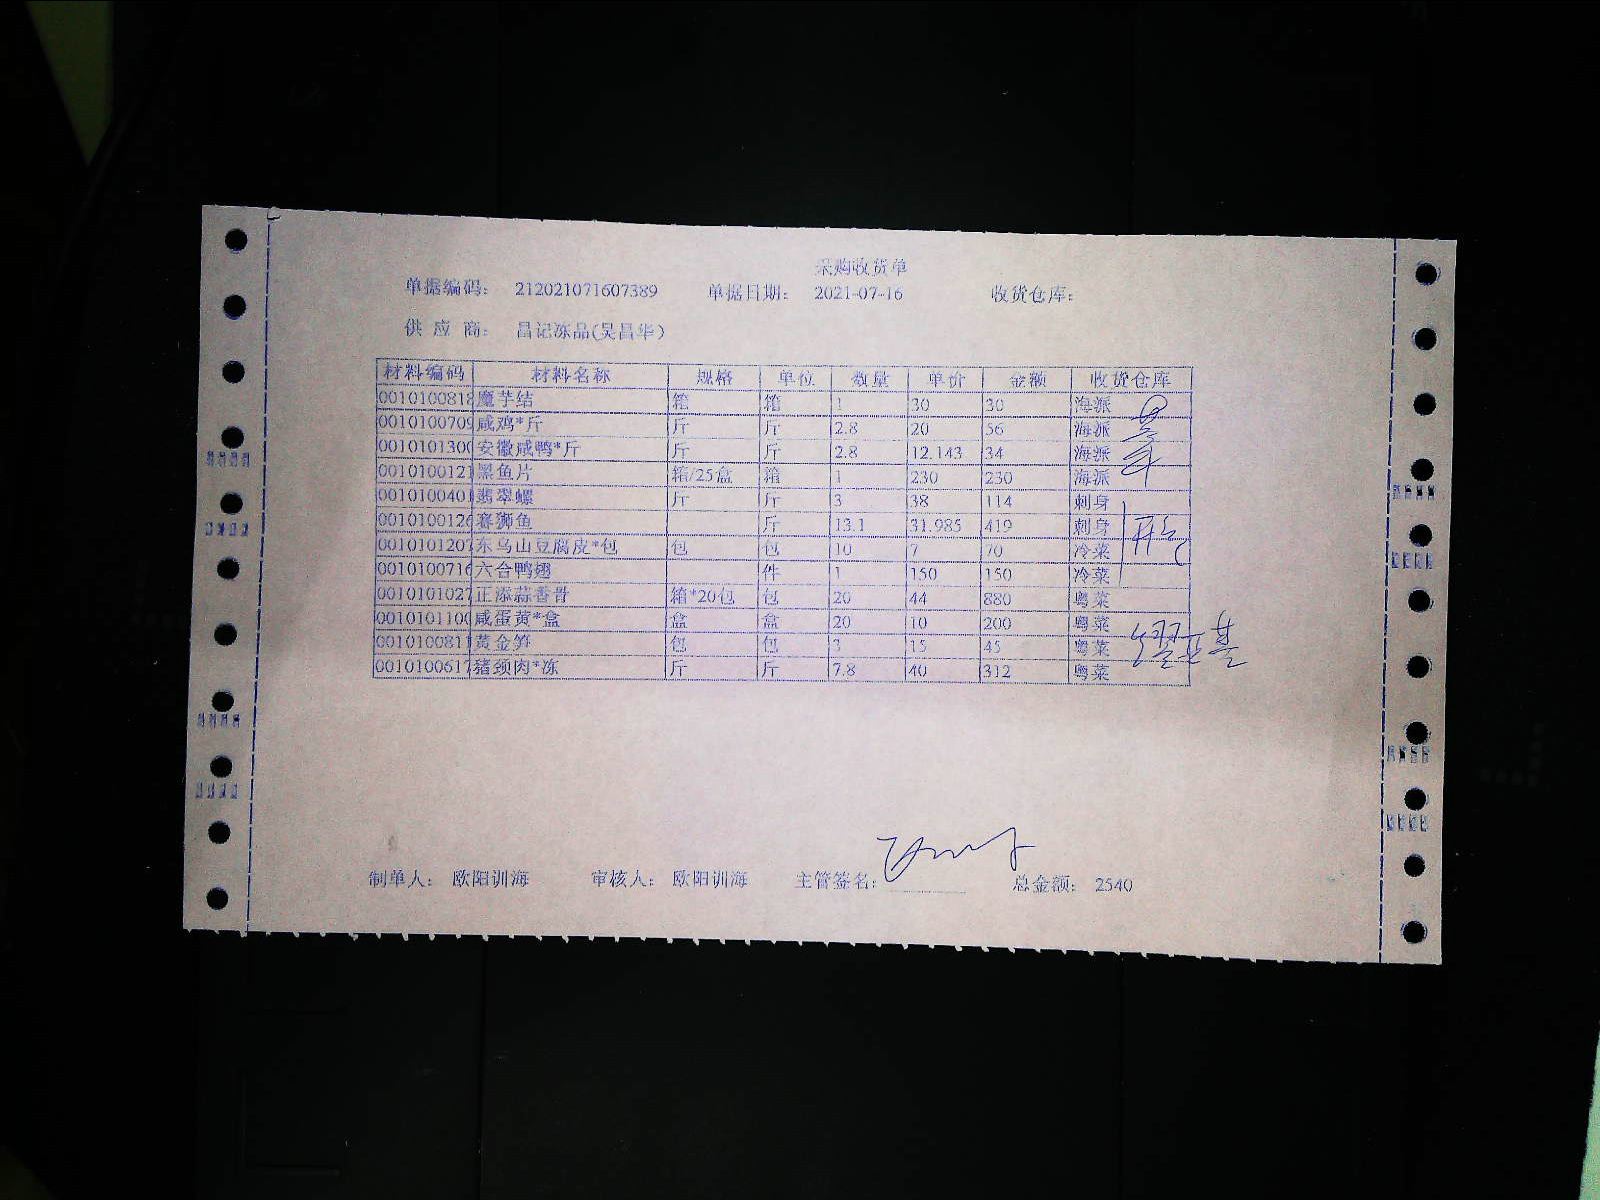 采购收货单
单据编码： 212021071607389 单据日期： 2021-07-16 收货仓库：
供 应 商： 昌记冻品(吴昌华)
材料编码 材料名称 规格 单位 数量 单价 金额 收货仓库
0010100818 魔芋结 箱 箱 1 30 30 海派
0010100709 咸鸡*斤 斤 斤 2.8 20 56 海派
0010101300 安徽咸鸭*斤 斤 斤 2.8 12.143 34 海派
0010100121 黑鱼片 箱/25盒 箱 1 230 230 海派
0010100401 翡翠螺 斤 斤 3 38 114 刺身
0010100126 狮鱼 斤 13.1 31.985 419 刺身
0010101207 东乌山豆腐皮*包 包 包 10 7 70 冷菜
0010100716 六合鸭翅 件 1 150 150 冷菜
0010101027 正添蒜香骨 箱*20包 包 20 44 880 粤菜
0010101100 咸蛋黄*盒 盒 盒 20 10 200 粤菜
0010100811 黄金笋 包 包 3 15 45 粤菜
0010100617 猪颈肉*冻 斤 斤 7.8 40 312 粤菜
制单人： 欧阳训海 审核人： 欧阳训海 主管签名： 总金额： 2540